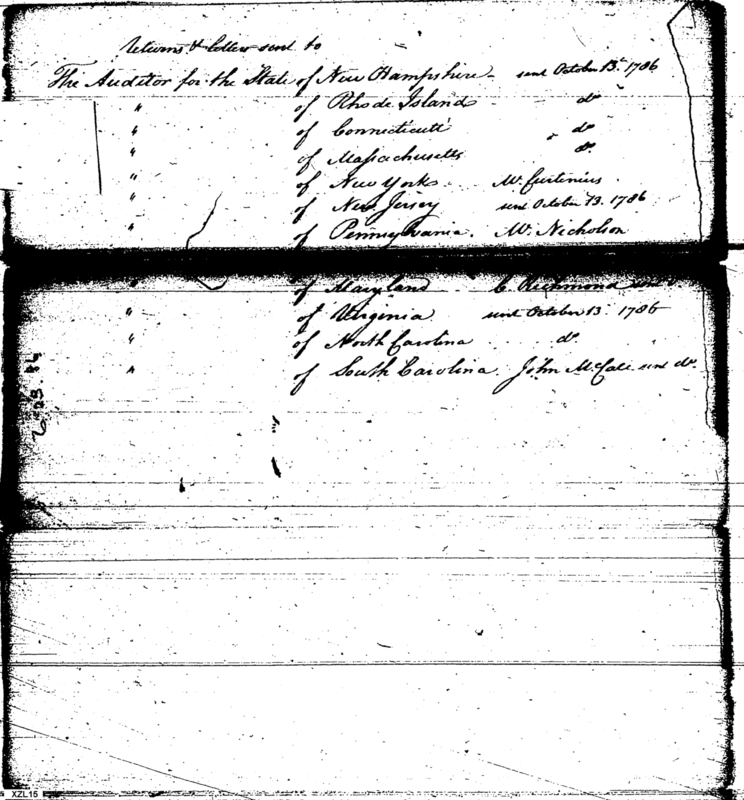 Returns & letters sent to
The Auditor for the State of New Hampshire - sent October 13th 1786
" of Rhode Island do
" of Connecticutt do
" of Massachusetts do.
" of New York Mr. Curtenius.
" of New Jersey sent October 13. 1786
" of Pennsylvania. Mr. Nicholson
" of Maryland C. Richmond sent
" of Virginia sent October 13. 1786
" of North Carolina do.
" of South Carolina. John McCall sent do.
XZL15